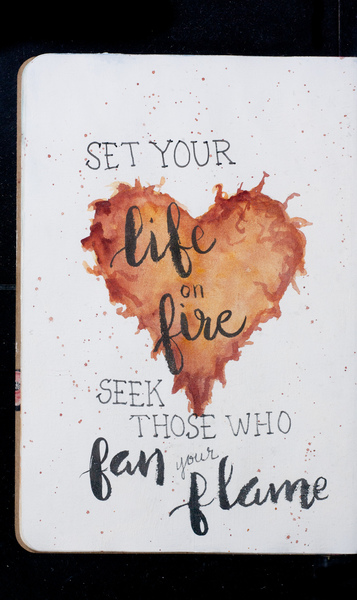 SET YOUR
life
on
fire
SEEK
THOSE WHO
fan your
flame